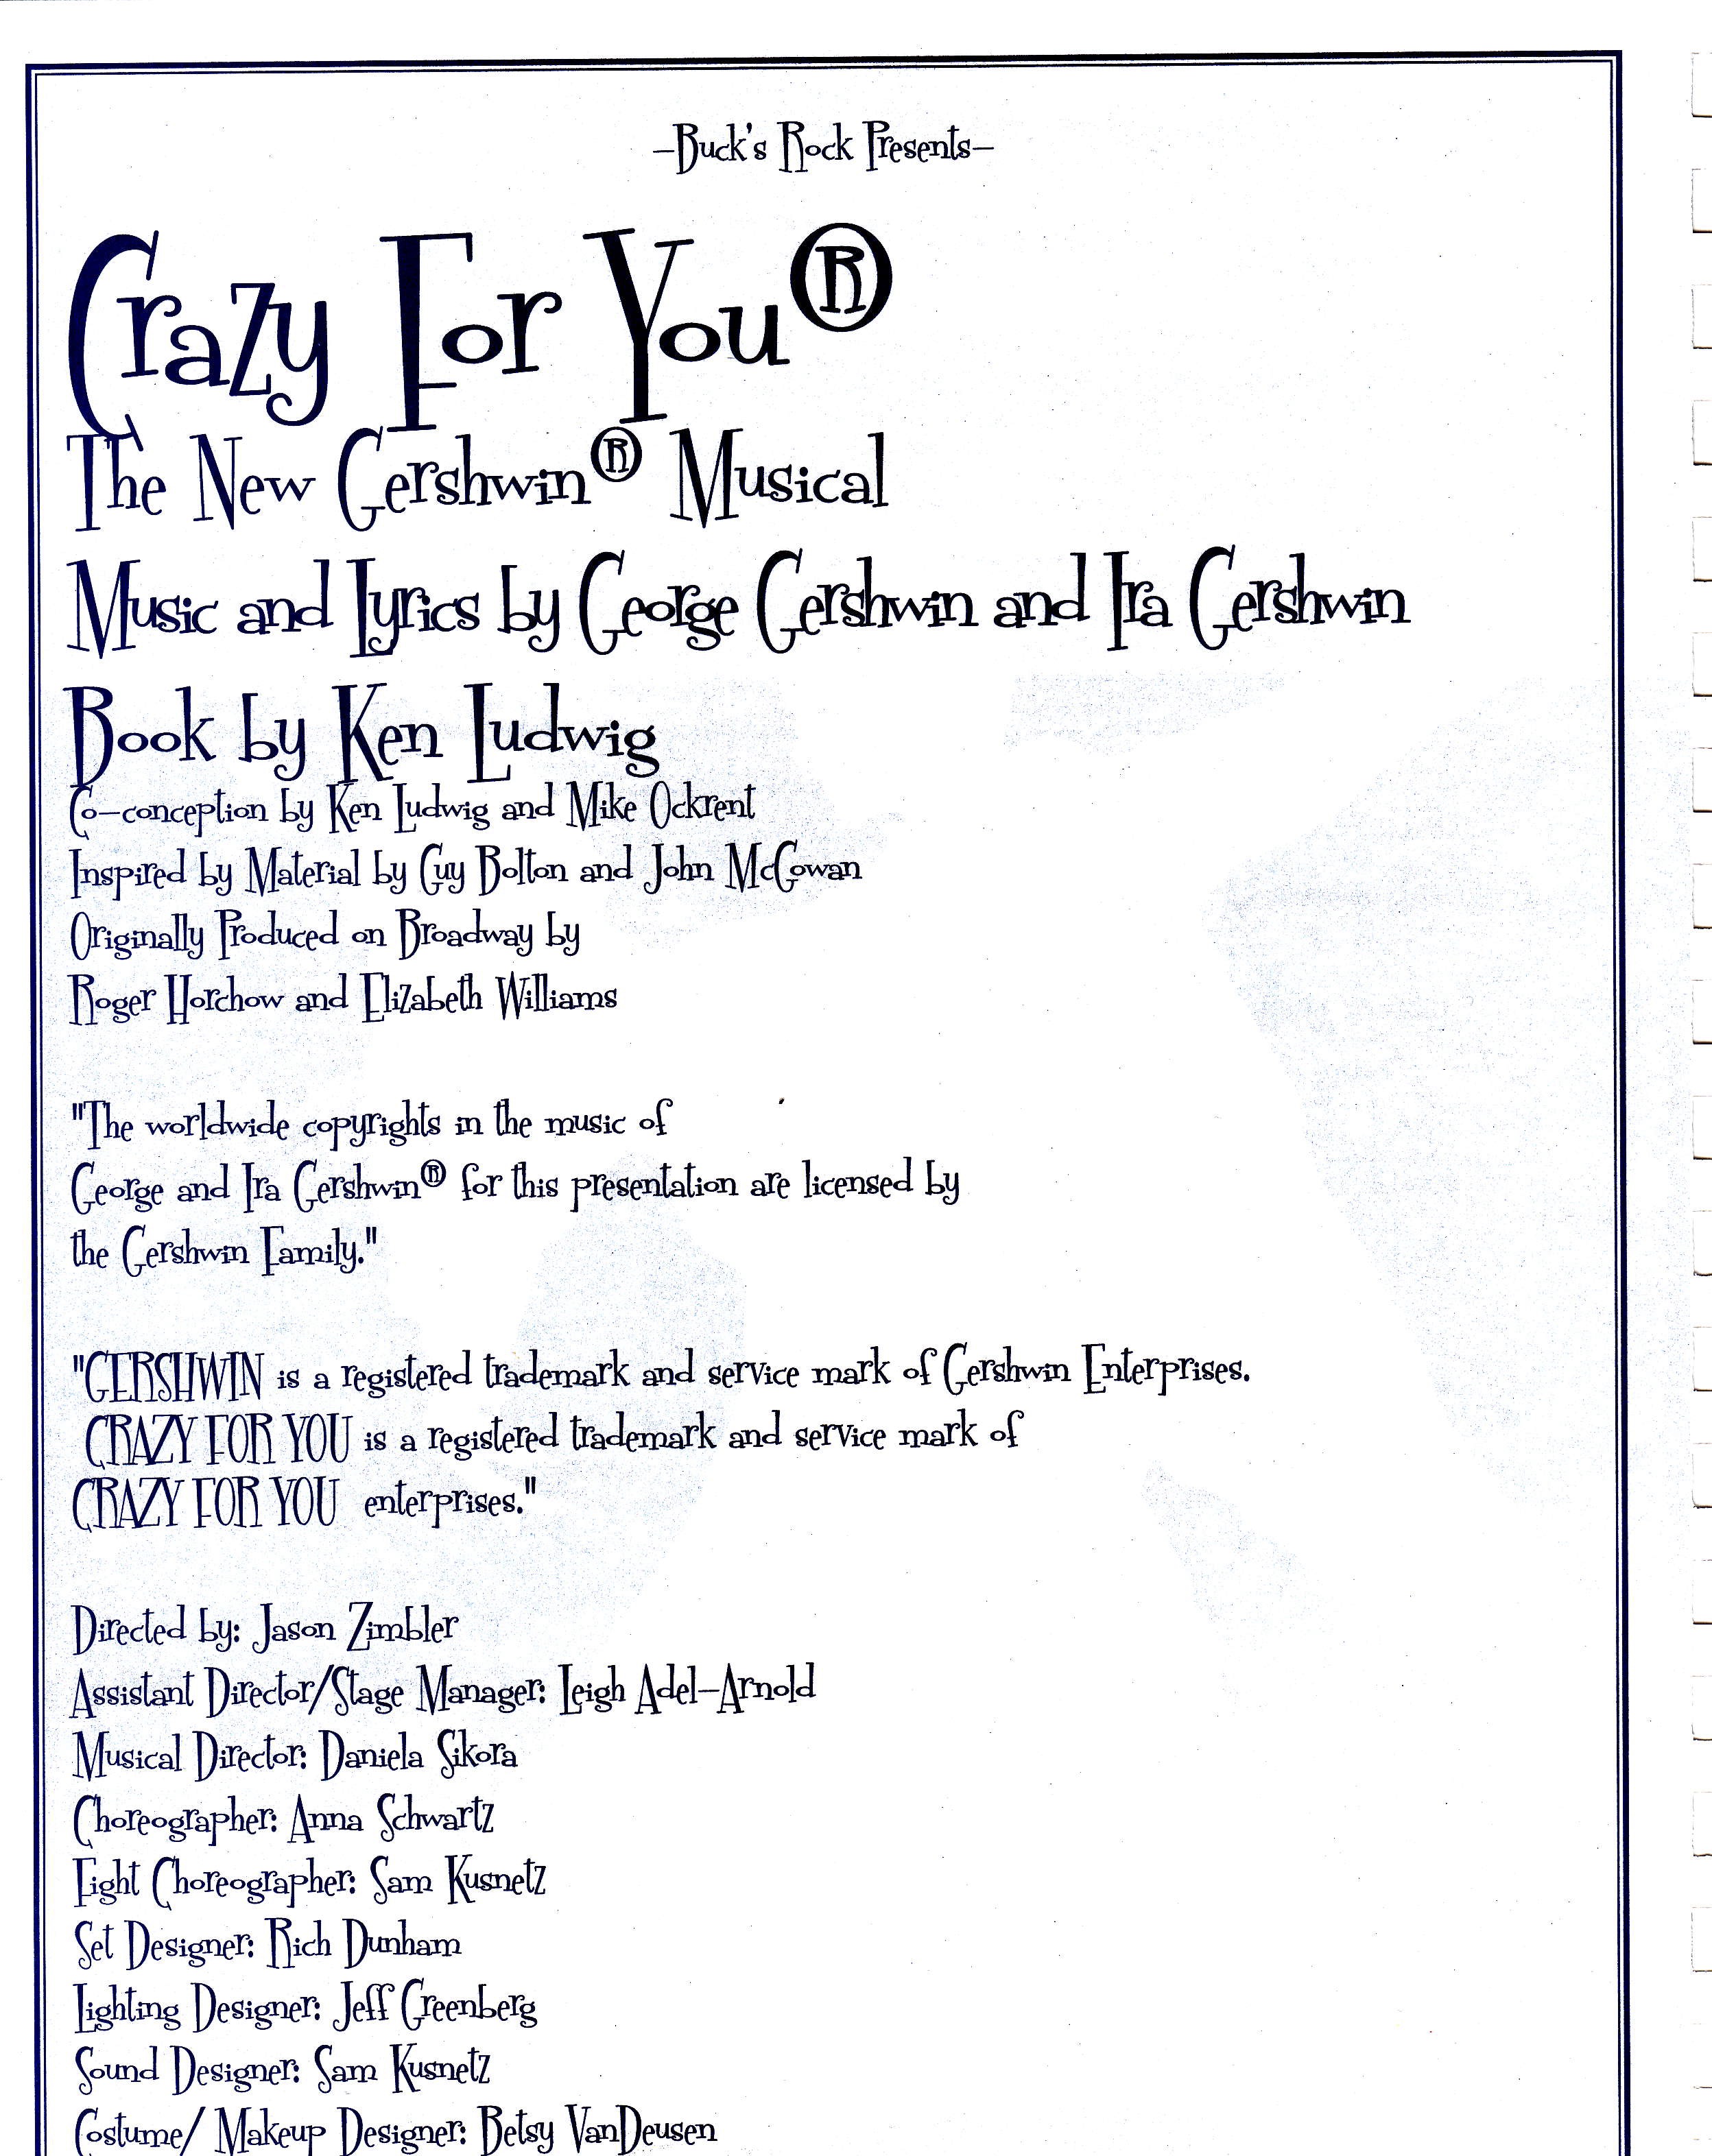 –Buck's Rock Presents–
Crazy For You®
The New Gershwin® Musical
Music and Lyrics by George Gershwin and Ira Gershwin
Book by Ken Ludwig
Co-conception by Ken Ludwig and Mike Ockrent
Inspired by Material by Guy Bolton and John McGowan
Originally Produced on Broadway by
Roger Horchow and Elizabeth Williams
"The worldwide copyrights in the music of
George and Ira Gershwin® for this presentation are licensed by
the Gershwin Family."
"GERSHWIN is a registered trademark and service mark of Gershwin Enterprises.
CRAZY FOR YOU is a registered trademark and service mark of
CRAZY FOR YOU enterprises."
Directed by: Jason Zimbler
Assistant Director/Stage Manager: Leigh Adel-Arnold
Musical Director: Daniela Sikora
Choreographer: Anna Schwartz
Fight Choreographer: Sam Kusnetz
Set Designer: Rich Dunham
Lighting Designer: Jeff Greenberg
Sound Designer: Sam Kusnetz
Costume/ Makeup Designer: Betsy VanDeusen